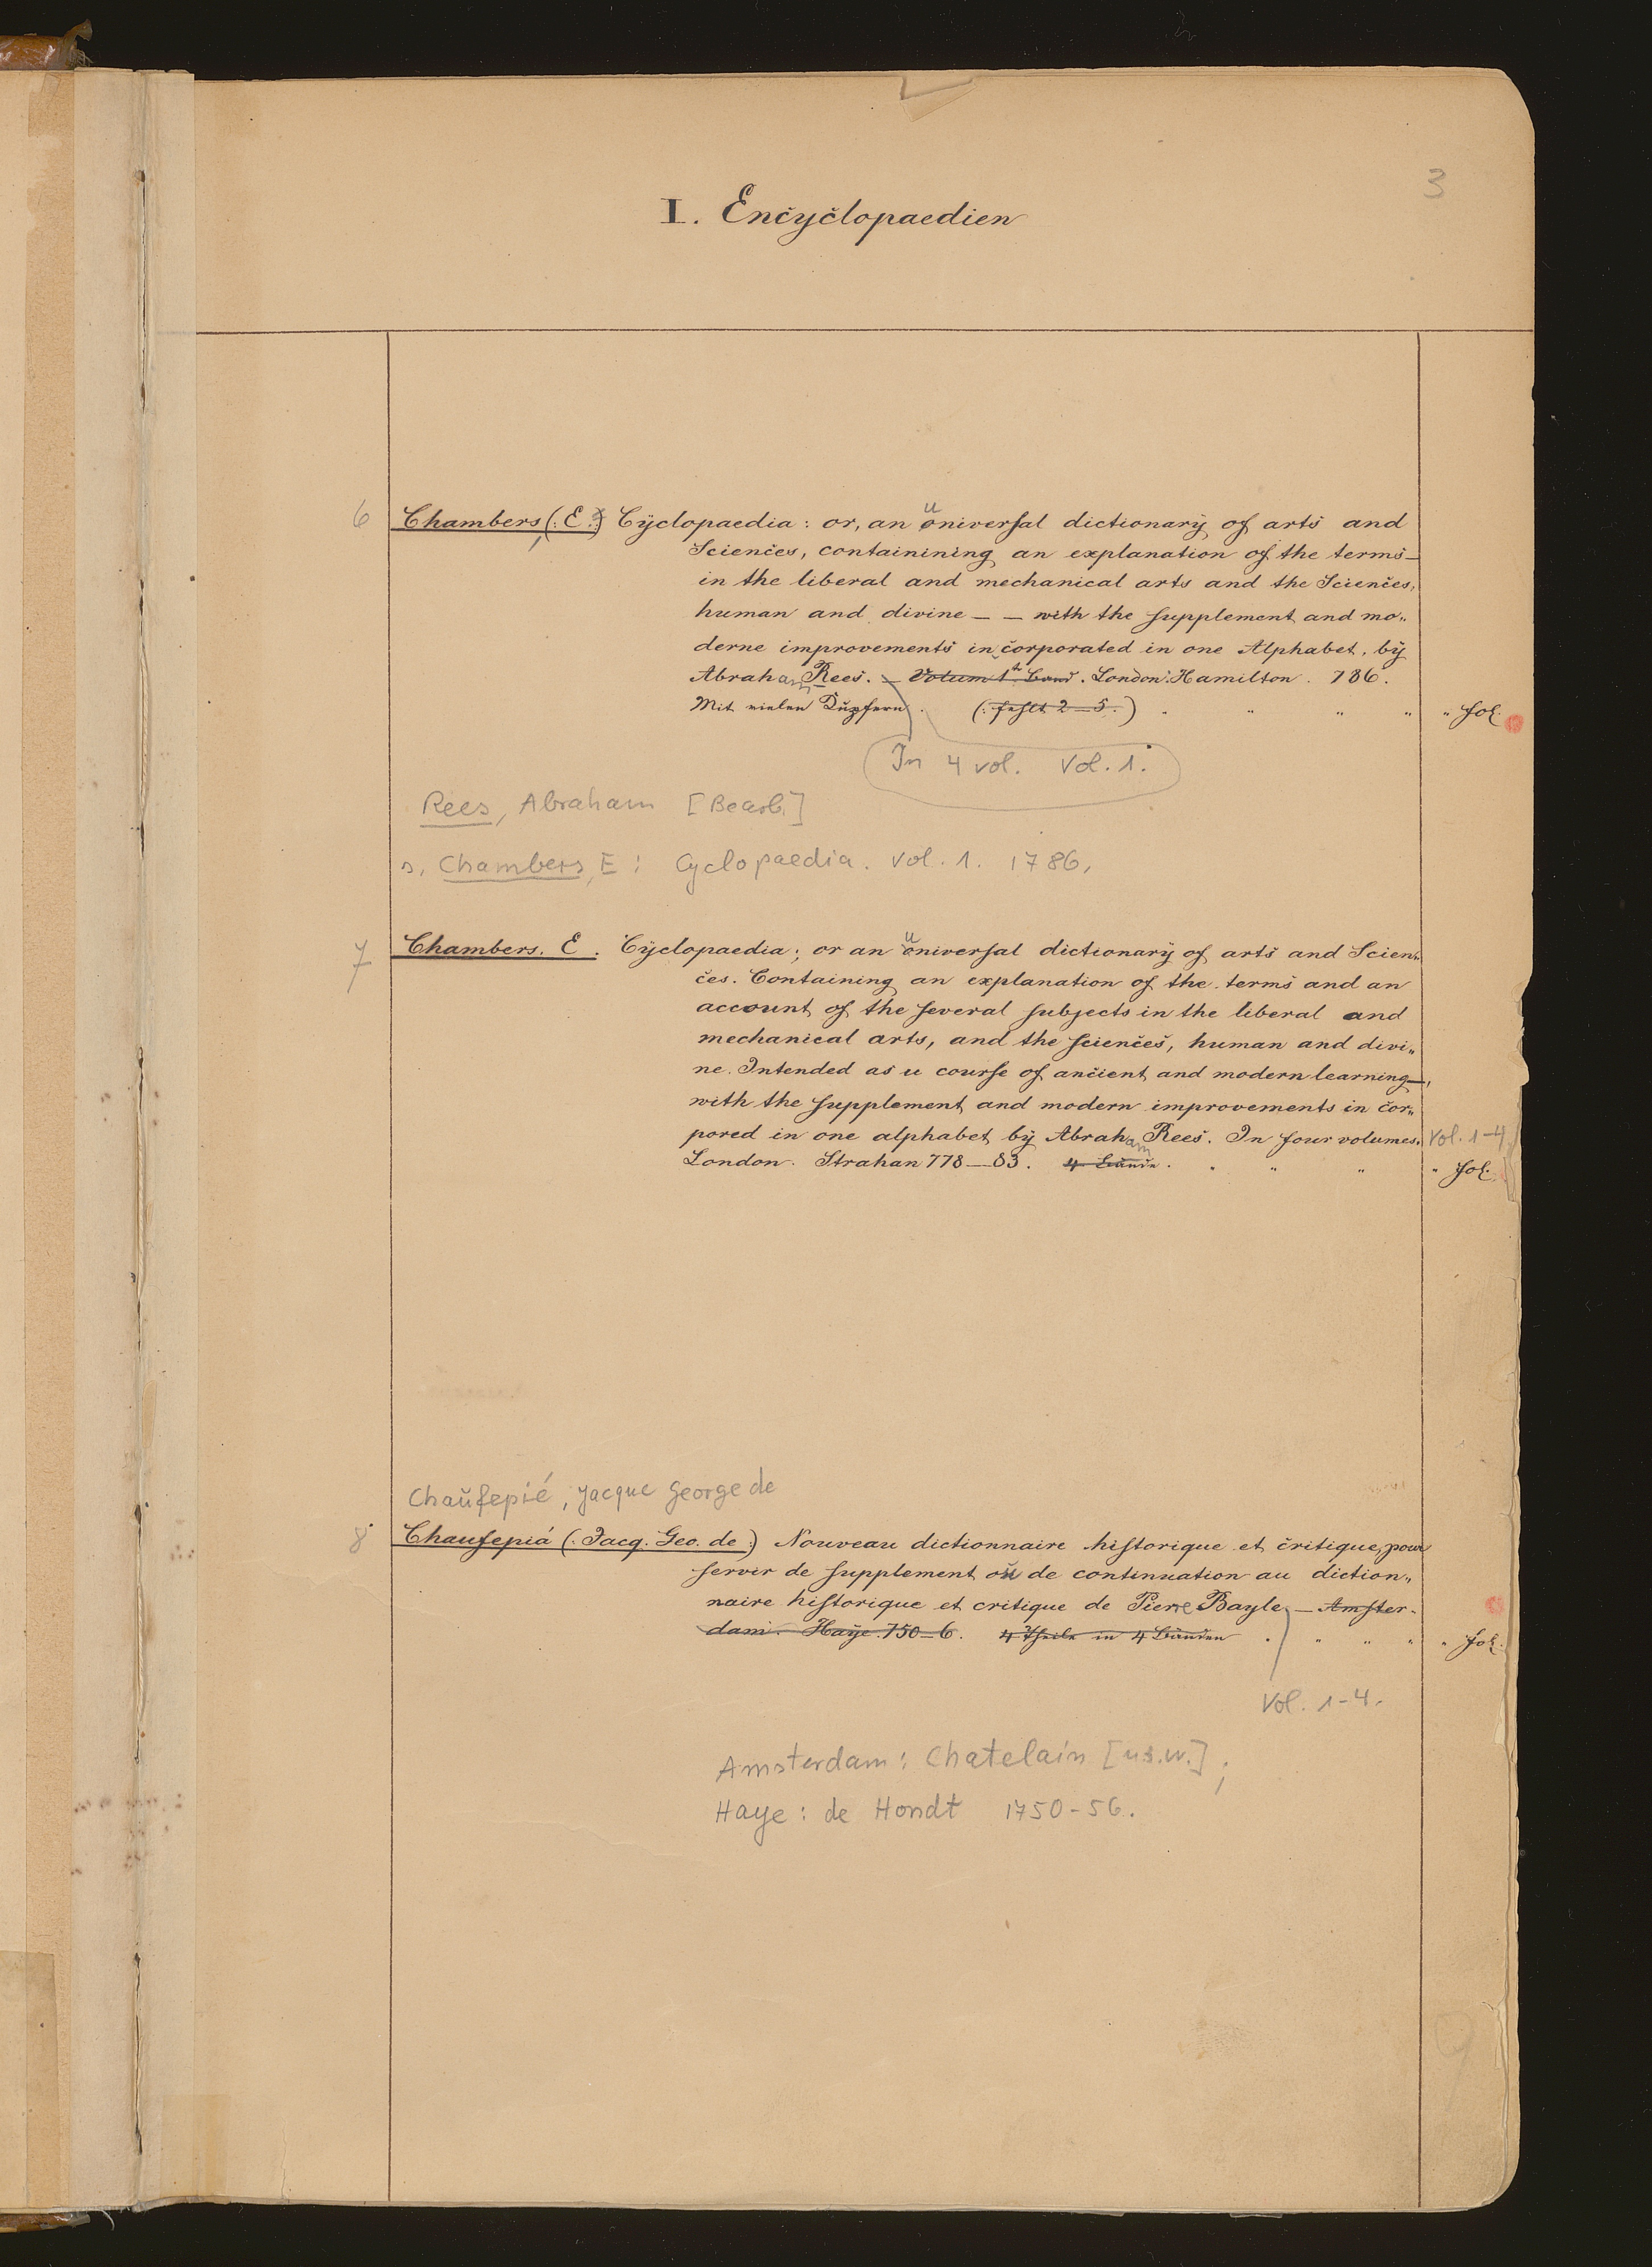 3
I. Encyclopaedien
6 Chambers, (: E :) Cyclopaedia: or, an universal dictionary of arts and
Sciences, containining an explanation of the terms —
in the liberal and mechanical arts and the Sciences,
human and divine — — with the supplement and mo„
derne improvements in corporated in one Alphabet, by
Abraham Rees. — Volum 1th Band. London: Hamilton. 786.
Mit vielen Kupfern. (: fehlt 2—5. :) " " " " " fol.
In 4 vol. Vol. 1.
Rees, Abraham [Bearb.]
s. Chambers, E: Cyclopaedia. Vol. 1. 1786.
7 Chambers. E. Cyclopaedia; or an universal dictionary of arts and Scien„
ces. Containing an explanation of the terms and an
account of the several subjects in the liberal and
mechanical arts, and the sciences, human and divi„
ne. Intended as a course of ancient and modern learning —,
with the supplement and modern improvements in cor„
pored in one alphabet by Abraham Rees. In four volumes. Vol. 1-4.
London. Strahan 778—83. 4 Bände. " " " " fol.
Chaufepié, Jacque George de
8 Chaufepiá (: Jacq. Geo. de :) Nouveau dictionnaire historique et critique, pour
servir de supplement ou de continuation au diction„
naire historique et critique de Pierre Bayle — Amster-
dam. Haye. 750—6. 4 Theile in 4 Bänden. " " " " fol.
Vol. 1-4.
Amsterdam: Chatelain [u.s.w.];
Haye: de Hondt 1750-56.